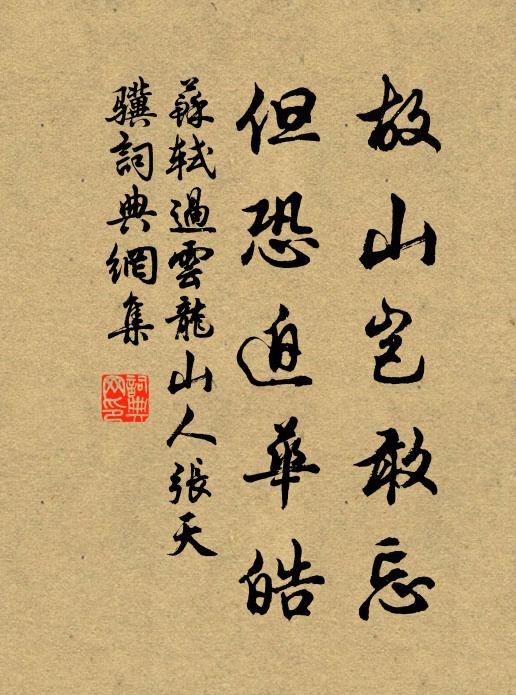 故山岂敢忘
但恐迫華皓
蘇軾過雲龍山人張天
驥詞典網集
詞典
网印